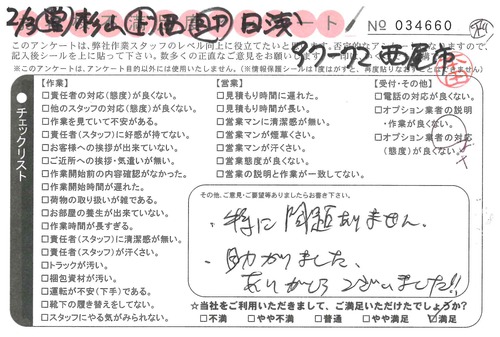 № 034660
97-72 西尾市
このアンケートは、弊社作業スタッフのレベル向上に役立てたいと
記入後シールを上に貼って下さい。数多くの正直なご意見をお願い
※このアンケートは、アンケート目的以外には使用いたしません。(※情報保護シールは1度はがすと、再度貼りなおすことは出来ません)
チェックリスト
【作業】
□責任者の対応(態度)が良くない。
□他のスタッフの対応(態度)が良くない。
□作業を見ていて不安がある。
□責任者(スタッフ)に好感が持てない。
□お客様への挨拶が出来ていない。
□ご近所への挨拶・気遣いが無い。
□作業開始前の内容確認がなかった。
□作業開始時間が遅れた。
□荷物の取り扱いが雑である。
□お部屋の養生が出来ていない。
□作業時間が長すぎる。
□責任者(スタッフ)に清潔感が無い。
□責任者(スタッフ)が汗くさい。
□トラックが汚い。
□梱包資材が汚い。
□運転が不安(下手)である。
□靴下の履き替えをしてない。
□スタッフにやる気が感じられない。
【営業】
□見積もり時間に遅れた。
□見積もり時間が長い。
□営業マンに清潔感が無い。
□営業マンが煙草くさい。
□営業マンが汗くさい。
□営業態度が良くない。
□営業の説明と作業が一致してない。
【受付・その他】
□電話の対応が良くない。
□オプション業者の説明・作業が良くない。
□オプション業者の対応(態度)が良くない。
その他、ご意見・ご要望等ありましたらお書き下さい。
・特に問題ありません。
・助かりました、
ありがとうございました!!
☆当社をご利用いただきまして、ご満足いただけたでしょうか?
□不満 □やや不満 □普通 □やや満足 ☑満足